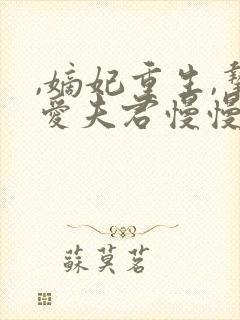 ,嫡妃重生,摯
愛夫君慢慢
蘇莫茗